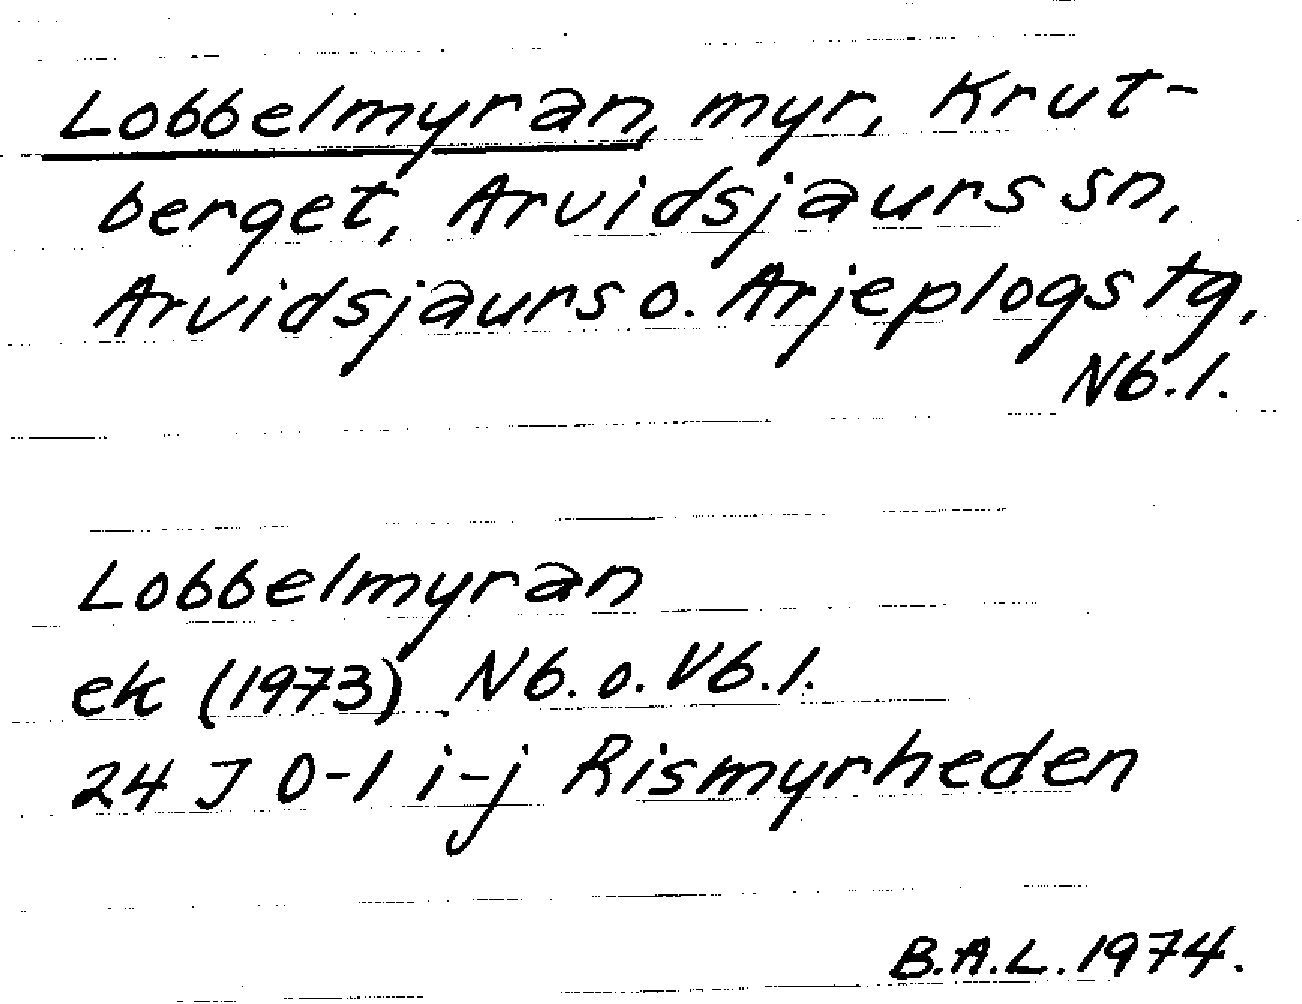 Lobbelmyran, myr, Krut-
berget, Arvidsjaurs sn,
Arvidsjaurs o. Arjeplogs tg,
Nb.l.
Lobbelmyran
ek (1973) Nb. o. Vb.l.
24 J 0-1 i-j Rismyrheden
B.A.L. 1974.